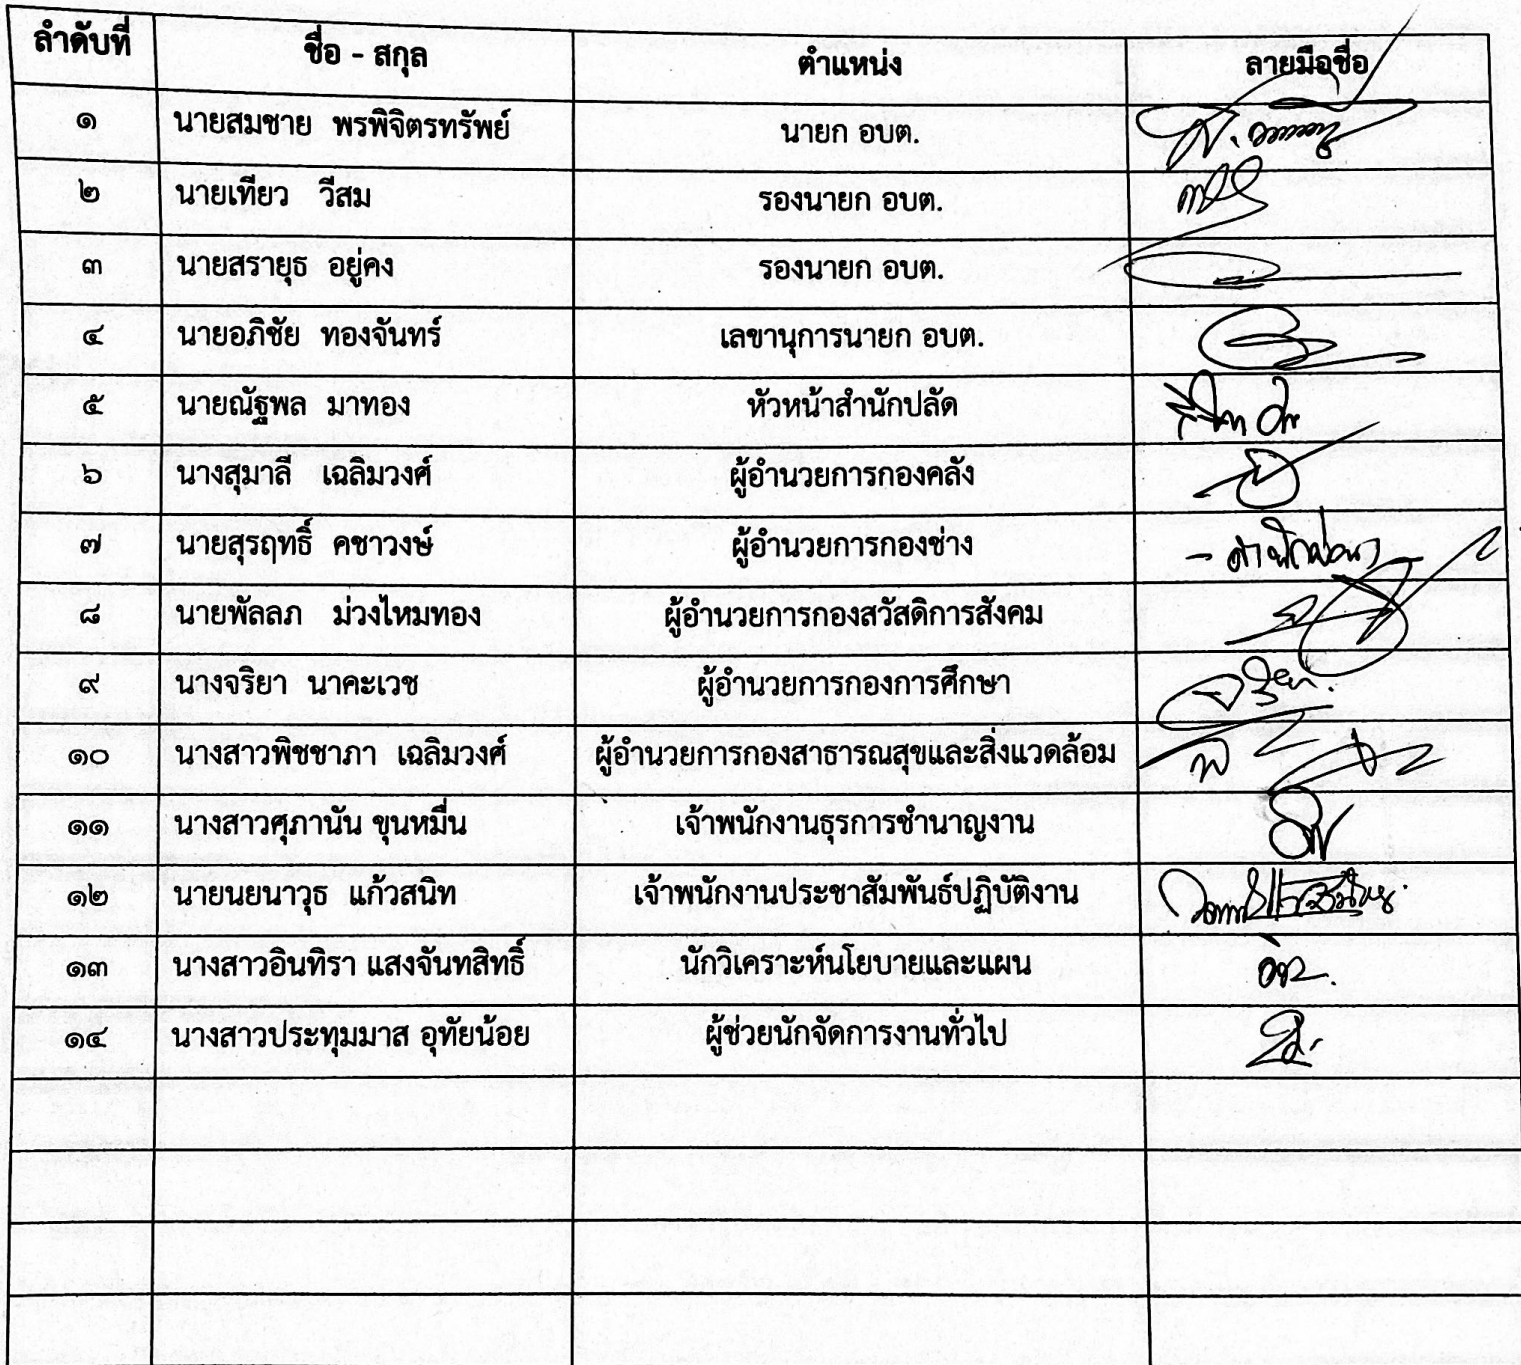 ลำดับที่ ชื่อ - สกุล ตำแหน่ง ลายมือชื่อ
๑ นายสมชาย พรพิจิตรทรัพย์ นายก อบต.
๒ นายเทียว วีสม รองนายก อบต.
๓ นายสรายุธ อยู่คง รองนายก อบต.
๔ นายอภิชัย ทองจันทร์ เลขานุการนายก อบต.
๕ นายณัฐพล มาทอง หัวหน้าสำนักปลัด
๖ นางสุมาลี เฉลิมวงศ์ ผู้อำนวยการกองคลัง
๗ นายสุรฤทธิ์ คชาวงษ์ ผู้อำนวยการกองช่าง
๘ นายพัลลภ ม่วงไหมทอง ผู้อำนวยการกองสวัสดิการสังคม
๙ นางจริยา นาคะเวช ผู้อำนวยการกองการศึกษา
๑๐ นางสาวพิชชาภา เฉลิมวงศ์ ผู้อำนวยการกองสาธารณสุขและสิ่งแวดล้อม
๑๑ นางสาวศุภานัน ขุนหมื่น เจ้าพนักงานธุรการชำนาญงาน
๑๒ นายนยนาวุธ แก้วสนิท เจ้าพนักงานประชาสัมพันธ์ปฏิบัติงาน
๑๓ นางสาวอินทิรา แสงจันทสิทธิ์ นักวิเคราะห์นโยบายและแผน
๑๔ นางสาวประทุมมาส อุทัยน้อย ผู้ช่วยนักจัดการงานทั่วไป